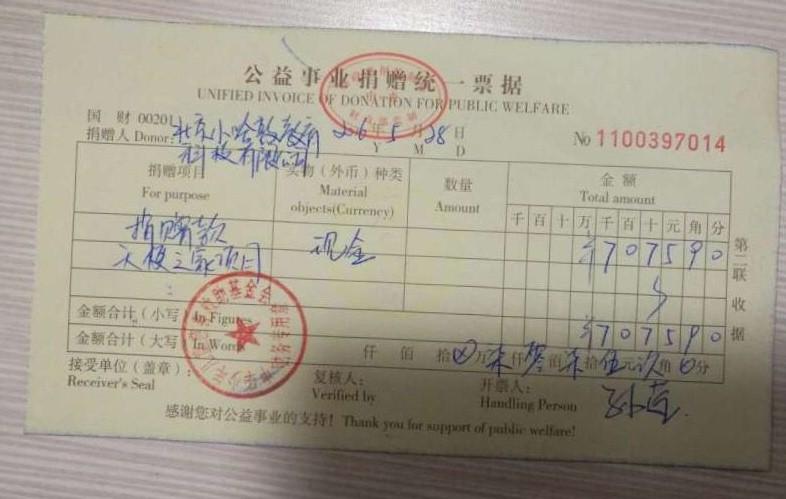 公益事业捐赠统一票据
UNIFIED INVOICE OF DONATION FOR PUBLIC WELFARE
国 财 00201
捐赠人 Donor: 北京小哈教教育科技有限公司 年 5 月 28 日
Y M D
No 1100397014
捐赠项目 实物（外币）种类 数量 金 额
For purpose Material objects(Currency) Amount Total amount
千 百 十 万 千 百 十 元 角 分
捐赠款 现金 ¥ 7 0 7 5 9 0
天使之家项目
金额合计（小写）In Figures ¥ 7 0 7 5 9 0
金额合计（大写）In Words 仟 佰 拾 万 柒 仟 零 佰 柒 拾 伍 元 玖 角 0 分
第二联 收据
接受单位（盖章）: 复核人: 开票人:
Receiver's Seal Verified by Handling Person
感谢您对公益事业的支持！Thank you for support of public welfare!